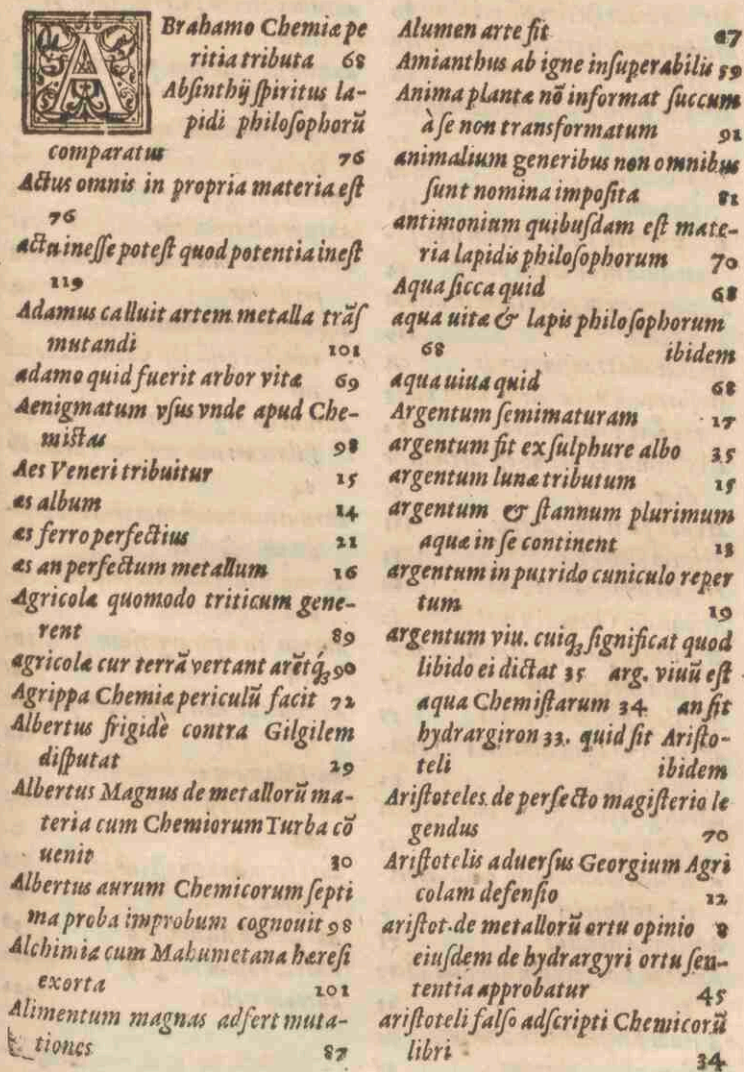 ABrahamo Chemiæ pe
ritia tributa 68
Abſinthij ſpiritus la-
pidi philoſophorũ
comparatus 76
Actus omnis in propria materia eſt
76
actu ineſſe poteſt quod potentia ineſt
119
Adamus calluit artem metalla trãſ
mutandi 101
adamo quid fuerit arbor vitæ 69
Aenigmatum vſus vnde apud Che-
miſtas 98
Aes Veneri tribuitur 15
æs album 14
æs ferro perfectius 21
æs an perfectum metallum 16
Agricolæ quomodo triticum gene-
rent 89
agricolæ cur terrã vertant arẽtq́; 90
Agrippa Chemiæ periculũ facit 72
Albertus frigidè contra Gilgilem
diſputat 29
Albertus Magnus de metallorũ ma-
teria cum Chemiorum Turba cõ
uenit 30
Albertus aurum Chemicorum ſepti
ma proba improbum cognouit 98
Alchimia cum Mahumetana hæreſi
exorta 101
Alimentum magnas adfert muta-
tiones 87
Alumen arte fit 47
Amianthus ab igne inſuperabilis 59
Anima plantæ nõ informat ſuccum
à ſe non transformatum 91
animalium generibus non omnibus
ſunt nomina impoſita 81
antimonium quibuſdam eſt mate-
ria lapidis philoſophorum 70
Aqua ſicca quid 68
aqua uitæ & lapis philoſophorum
68 ibidem
aqua uiua quid 68
Argentum ſemimaturam 17
argentum fit ex ſulphure albo 35
argentum lunæ tributum 15
argentum & ſtannum plurimum
aquæ in ſe continent 13
argentum in putrido cuniculo reper
tum 19
argentum viu. cuiq; ſignificat quod
libido ei dictat 35 arg. viuũ eſt
aqua Chemiſtarum 34 an ſit
hydrargiron 33. quid ſit Ariſto-
teli ibidem
Ariſtoteles de perfecto magiſterio le
gendus 70
Ariſtotelis aduerſus Georgium Agri
colam defenſio 12
ariſtot. de metallorũ ortu opinio 8
eiuſdem de hydrargyri ortu ſen-
tentia approbatur 45
ariſtoteli falſo adſcripti Chemicorũ
libri 34